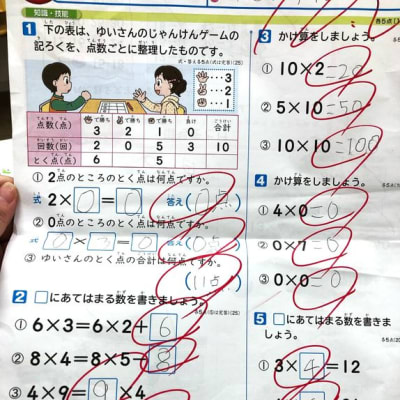 知識・技能
1 下の表は、ゆいさんのじゃんけんゲームの
記ろくを、点数ごとに整理したものです。
式・答え各5点(式は完答)(25)
…3
…2
…1
で勝ち で勝ち で勝ち 負け 合計
点数(点) 3 2 1 0
回数(回) 2 0 5 3 10
とく点(点) 6 5
① 2点のところのとく点は何点ですか。
式 2×0=0 答え(0点)
② 0点のところのとく点は何点ですか。
式 0×3=0 答え(0点)
③ ゆいさんのとく点の合計は何点ですか。
(11点)
2 □にあてはまる数を書きましょう。
① 6×3=6×2+6
② 8×4=8×5-8
③ 4×9=9×4
3 かけ算をしましょう。
① 10×2=20
② 5×10=50
③ 10×10=100
4 かけ算をしましょう。
① 4×0=0
② 0×7=0
③ 0×0=0
5 □にあてはまる数を書きま
しょう。
① 3×4=12